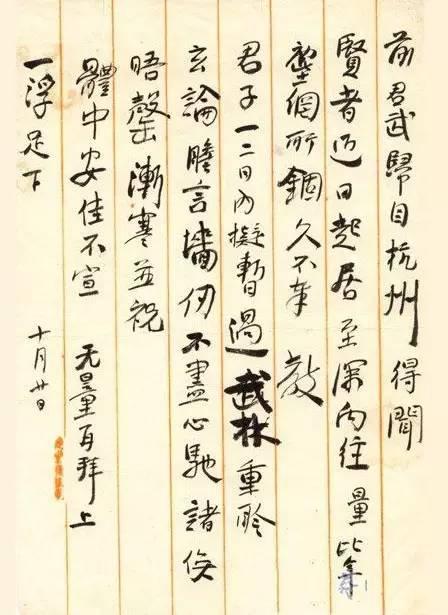 前君武歸自杭州得聞
賢者近日起居至深向往量比年
塵網所錮久不奉教
君子一二日內擬暫過武林重聆
玄論瞻言墻仞不盡心馳諸俟
晤罄漸寒並祝
體中安佳不宣 无量再拜上
一浮足下 十月廿日